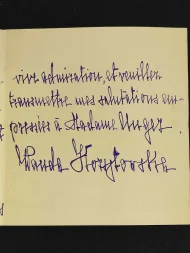 vive admiration, et veuillez
transmettre mes salutations em-
pressées à Madame Unger
Wanda